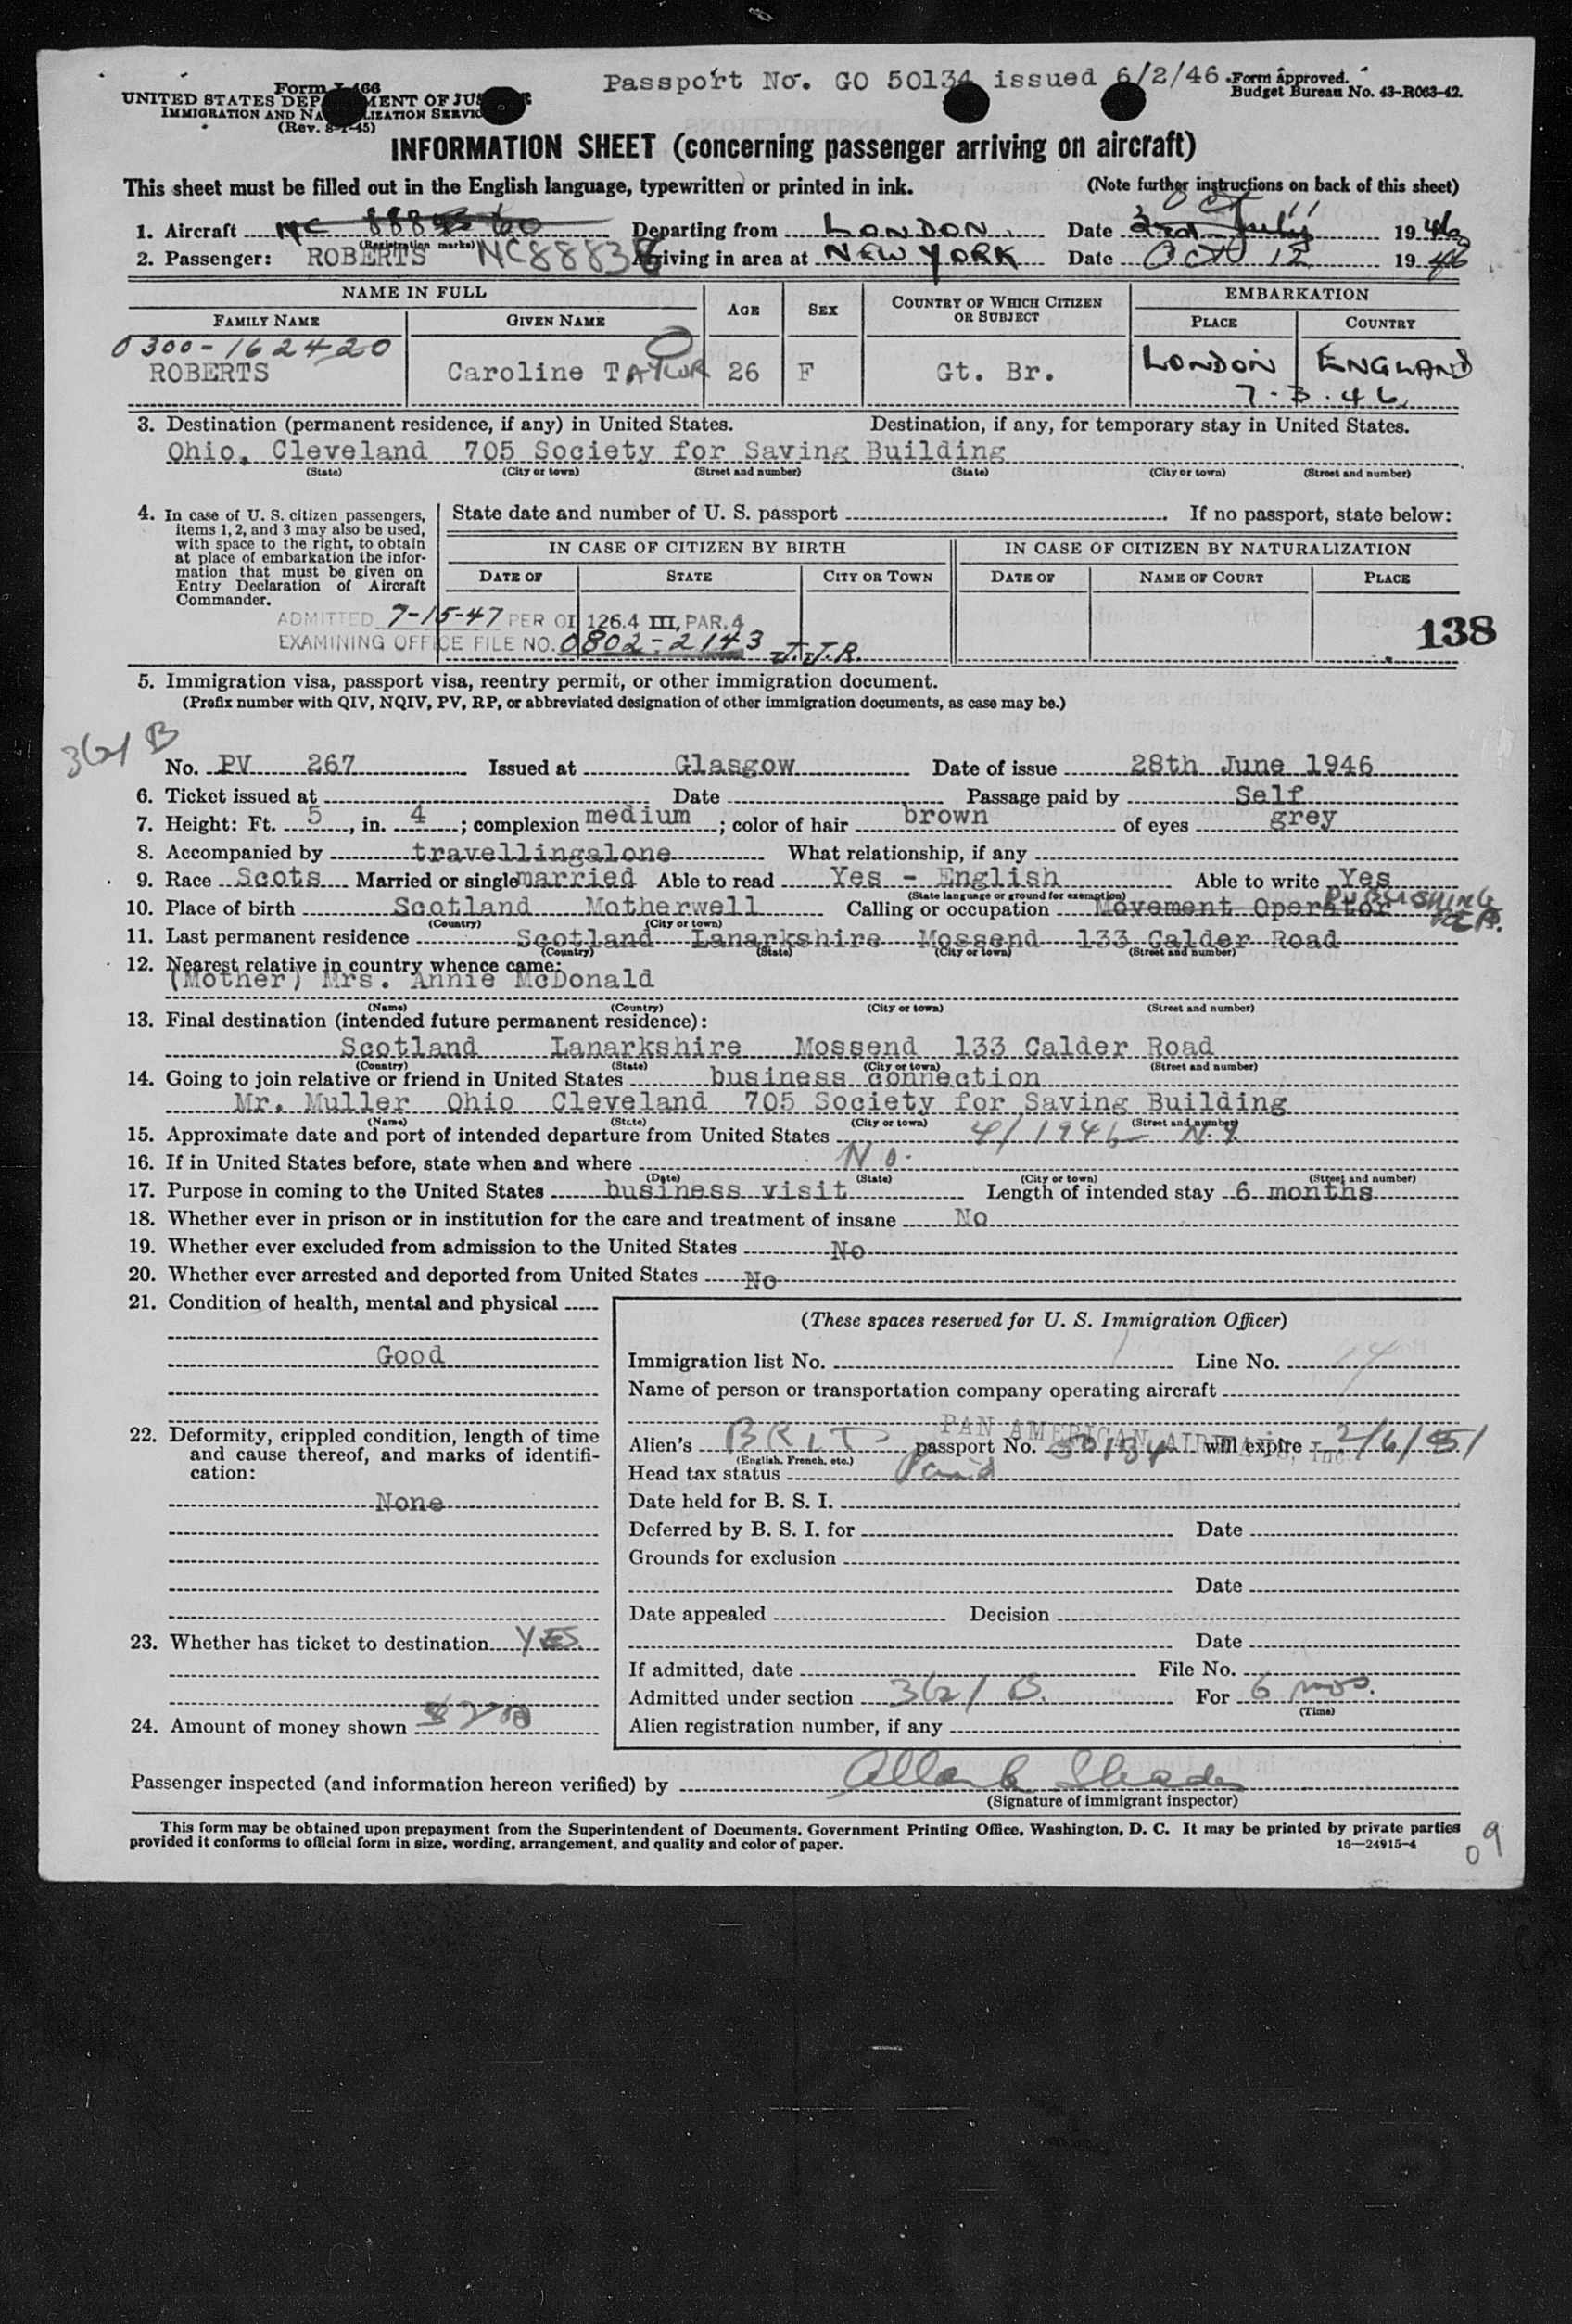 Passport No. GO 50134 issued 6/2/46
Form I-466
UNITED STATES DEPARTMENT OF JUSTICE
IMMIGRATION AND NATURALIZATION SERVICE
(Rev. 8-1-45)
Form approved.
Budget Bureau No. 43-R063-42.
INFORMATION SHEET (concerning passenger arriving on aircraft)
This sheet must be filled out in the English language, typewritten or printed in ink. (Note further instructions on back of this sheet)
1. Aircraft (Registration marks) NC88838 Departing from LONDON. Date 3rd July Oct 11 1946
2. Passenger: ROBERTS Arriving in area at NEW YORK Date Oct 12 1946
NAME IN FULL AGE SEX COUNTRY OF WHICH CITIZEN OR SUBJECT EMBARKATION
FAMILY NAME GIVEN NAME PLACE COUNTRY
0300-162420
ROBERTS Caroline TAYLOR 26 F Gt. Br. LONDON ENGLAND
7.3.46
3. Destination (permanent residence, if any) in United States. Destination, if any, for temporary stay in United States.
Ohio, Cleveland 705 Society for Saving Building
(State) (City or town) (Street and number) (State) (City or town) (Street and number)
4. In case of U. S. citizen passengers, items 1, 2, and 3 may also be used, with space to the right, to obtain at place of embarkation the information that must be given on Entry Declaration of Aircraft Commander.
State date and number of U. S. passport If no passport, state below:
IN CASE OF CITIZEN BY BIRTH IN CASE OF CITIZEN BY NATURALIZATION
DATE OF STATE CITY OR TOWN DATE OF NAME OF COURT PLACE
ADMITTED 7-15-47 PER OI 126.4 III, PAR. 4
EXAMINING OFFICE FILE NO. 0802-2143 J.J.R.
138
5. Immigration visa, passport visa, reentry permit, or other immigration document.
(Prefix number with QIV, NQIV, PV, RP, or abbreviated designation of other immigration documents, as case may be.)
3(2)1 B
No. PV 267 Issued at Glasgow Date of issue 28th June 1946
6. Ticket issued at Date Passage paid by Self
7. Height: Ft. 5, in. 4; complexion medium; color of hair brown of eyes grey
8. Accompanied by travellingalone What relationship, if any
9. Race Scots Married or single married Able to read Yes - English Able to write Yes
(State language or ground for exemption)
10. Place of birth Scotland Motherwell Calling or occupation Movement Operator PUBLISHING
(Country) (City or town)
11. Last permanent residence Scotland Lanarkshire Mossend 133 Calder Road
(Country) (State) (City or town) (Street and number)
12. Nearest relative in country whence came:
(Mother) Mrs. Annie McDonald
(Name) (Country) (City or town) (Street and number)
13. Final destination (intended future permanent residence):
Scotland Lanarkshire Mossend 133 Calder Road
(Country) (State) (City or town) (Street and number)
14. Going to join relative or friend in United States business connection
Mr. Muller Ohio Cleveland 705 Society for Saving Building
(Name) (State) (City or town) (Street and number)
15. Approximate date and port of intended departure from United States 4/1946 N.Y.
16. If in United States before, state when and where No.
(Date) (State) (City or town) (Street and number)
17. Purpose in coming to the United States business visit Length of intended stay 6 months
18. Whether ever in prison or in institution for the care and treatment of insane No
19. Whether ever excluded from admission to the United States No
20. Whether ever arrested and deported from United States No
21. Condition of health, mental and physical
Good
22. Deformity, crippled condition, length of time and cause thereof, and marks of identification:
None
23. Whether has ticket to destination YES
24. Amount of money shown $200
(These spaces reserved for U. S. Immigration Officer)
Immigration list No. 1 Line No. 14
Name of person or transportation company operating aircraft
PAN AMERICAN AIRWAYS, Inc.
Alien's BRIT passport No. 50134 will expire 2/6/51
(English, French, etc.)
Head tax status Paid
Date held for B. S. I.
Deferred by B. S. I. for Date
Grounds for exclusion
Date
Date appealed Decision
Date
If admitted, date File No.
Admitted under section 3(2)1 B. For 6 mos.
(Time)
Alien registration number, if any
Passenger inspected (and information hereon verified) by
(Signature of immigrant inspector)
This form may be obtained upon prepayment from the Superintendent of Documents, Government Printing Office, Washington, D. C. It may be printed by private parties
provided it conforms to official form in size, wording, arrangement, and quality and color of paper. 16—24915-4
09